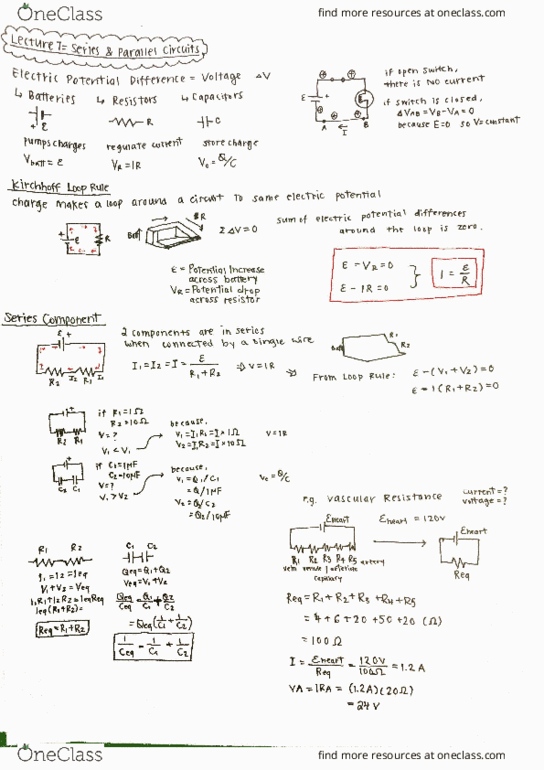 OneClass
find more resources at oneclass.com
Lecture 7= Series & Parallel Circuits
Electric Potential Difference = Voltage ΔV
↳ Batteries ↳ Resistors ↳ Capacitors
ε R C
pumps charges regulate current store charge
Vbatt = ε VR = IR Vc = Q/C
if open switch,
there is NO current
if switch is closed,
ΔVAB = VB - VA = 0
because E=0 so V=constant
ε
A I B
Kirchhoff Loop Rule
charge makes a loop around a circuit to same electric potential
ε R
Batt R
Σ ΔV = 0
sum of electric potential differences
around the loop is zero.
ε = Potential increase
across battery
VR = Potential drop
across resistor
ε - VR = 0
ε - IR = 0
I = ε/R
Series Component
2 components are in series
when connected by a single wire
I1 = I2 = I = ε/(R1 + R2) ⇒ V = IR
From Loop Rule: ε - (V1 + V2) = 0
ε = I(R1 + R2) = 0
R2 I2 R1 I1
Batt R1 R2
if R1 = 1Ω
R2 = 10Ω
V = ?
V1 < V1
R2 R1
because,
V1 = I1R1 = I × 1Ω
V2 = I2R2 = I × 10Ω
V = IR
if C1 = 1μF
C2 = 10μF
V = ?
V1 > V2
C2 C1
because,
V1 = Q1/C1
= Q/1μF
V2 = Q2/C2
= Q2/10μF
Vc = Q/C
e.g. Vascular Resistance
current = ?
voltage = ?
Eheart
Eheart = 120V
Eheart
R1 R2 R3 R4 R5 artery
vein venule | arteriole
capillary
Req
R1 R2
I1 = I2 = Ieq
V1 + V2 = Veq
I1R1 + I2R2 = IeqReq
Ieq(R1+R2) =
Req = R1 + R2
C1 C2
Qeq = Q1 + Q2
Veq = V1 + V2
Qeq/Ceq = Q1/C1 + Q2/C2
= Qeq(1/C1 + 1/C2)
1/Ceq = 1/C1 + 1/C2
Req = R1 + R2 + R3 + R4 + R5
= 4 + 6 + 20 + 50 + 20 (Ω)
= 100 Ω
I = Eheart/Req = 120V/100Ω = 1.2 A
VA = IRA = (1.2A)(20Ω)
= 24 V
OneClass
find more resources at oneclass.com